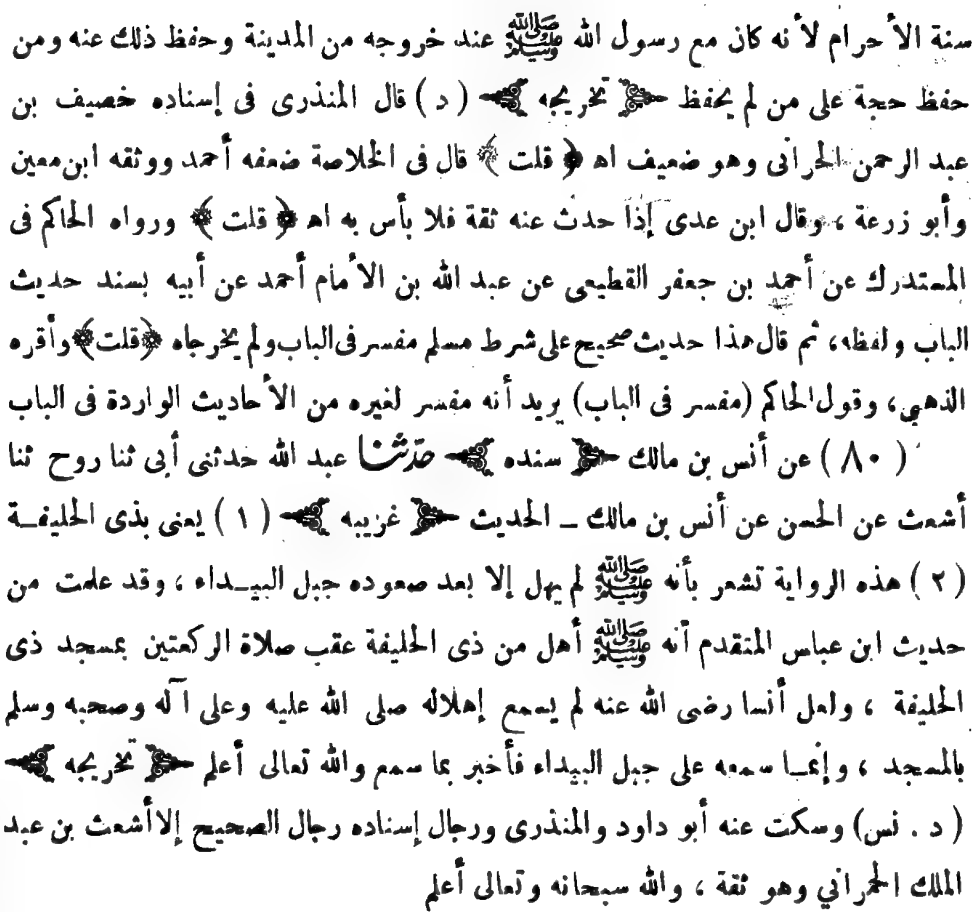 سنة الأحرام لأنه كان مع رسول الله ﷺ عند خروجه من المدينة وحفظ ذلك عنه ومن
حفظ حجة على من لم يحفظ ﴿ تخريجه ﴾ (د) قال المنذرى فى إسناده خصيف بن
عبد الرحمن الحرانى وهو ضعيف اه ﴿ قلت ﴾ قال فى الخلاصة ضعفه أحمد ووثقه ابن معين
وأبو زرعة ، وقال ابن عدى إذا حدث عنه ثقة فلا بأس به اه ﴿ قلت ﴾ ورواه الحاكم فى
المستدرك عن أحمد بن جعفر القطيعى عن عبد الله بن الأمام أحمد عن أبيه بسند حديث
الباب ولفظه، ثم قال هذا حديث صحيح على شرط مسلم مفسر فى الباب ولم يخرجاه ﴿قلت﴾ وأقره
الذهبي، وقول الحاكم (مفسر فى الباب) يريد أنه مفسر لغيره من الأحاديث الواردة فى الباب
(٨٠) عن أنس بن مالك ﴿ سنده ﴾ حدّثنا عبد الله حدثنى أبى ثنا روح ثنا
أشعث عن الحسن عن أنس بن مالك ـ الحديث ﴿ غريبه ﴾ (١) يعنى بذى الحليفـة
(٢) هذه الرواية تشعر بأنه ﷺ لم يهل إلا بعد صعوده جبل البيـداء ، وقد علمت من
حديث ابن عباس المتقدم أنه ﷺ أهل من ذى الحليفة عقب صلاة الركعتين بمسجد ذى
الحليفة ، ولعل أنسا رضى الله عنه لم يسمع إهلاله صلى الله عليه وعلى آله وصحبه وسلم
بالمسجد ، وإنمـا سمعه على جبل البيداء فأخبر بما سمع والله تعالى أعلم ﴿ تخريجه ﴾
(د . نس) وسكت عنه أبو داود والمنذرى ورجال إسناده رجال الصحيح إلا أشعث بن عبد
الملك الحمراني وهو ثقة ، والله سبحانه وتعالى أعلم